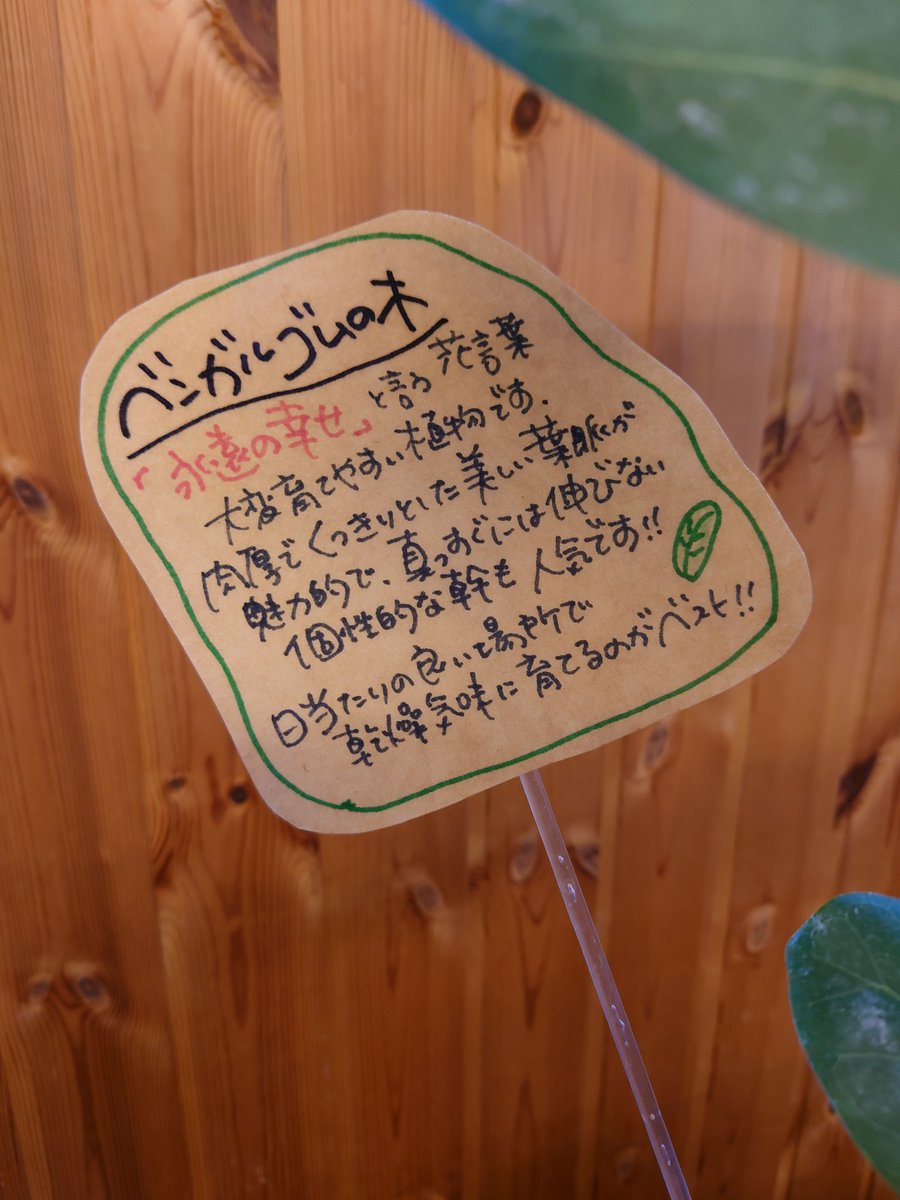 ベンガルゴムの木
「永遠の幸せ」と言る花言葉
大変育てやすい植物です.
肉厚でくっきりとした美しい葉脈が
魅力的で、真っすぐには伸びない
個性的な幹も人気です!!
日当たりの良い場所で
乾燥気味に育てるのがベスト!!